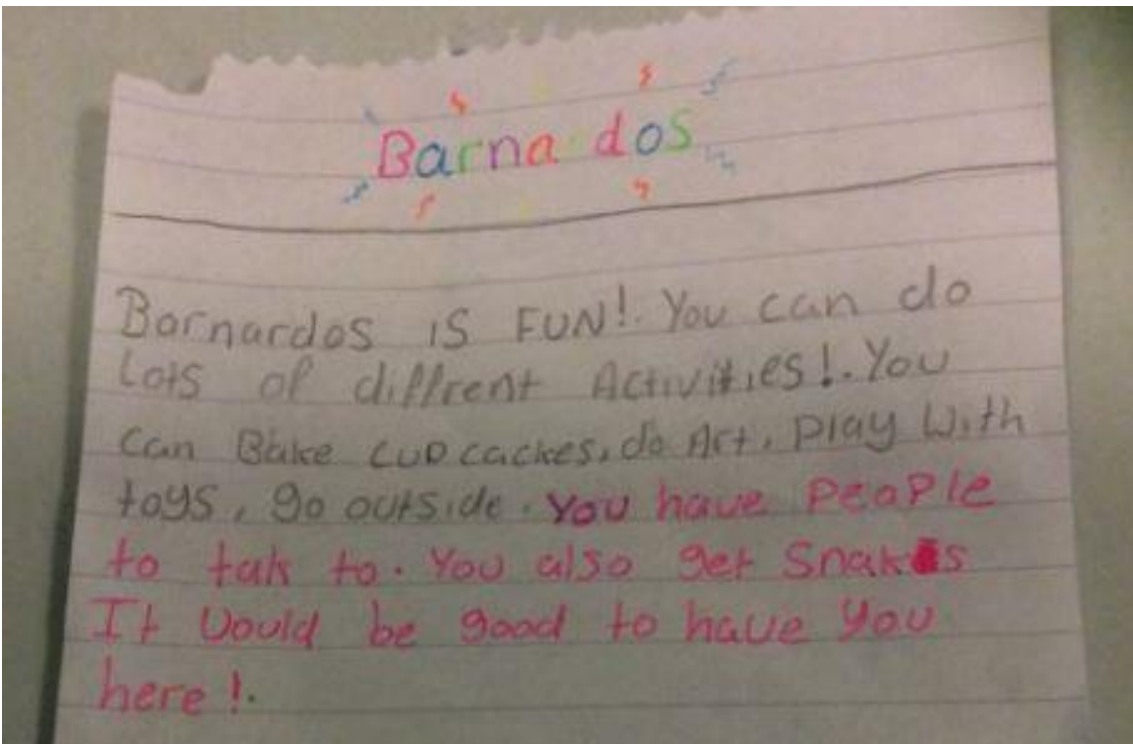 Barnados
Barnardos is FUN!. You can do
Lots of diffrent Activities!. You
can Bake cupcackes, do Art, play with
toys, go outside. You have peaple
to talk to. You also get Snaks
It Would be good to have you
here!.